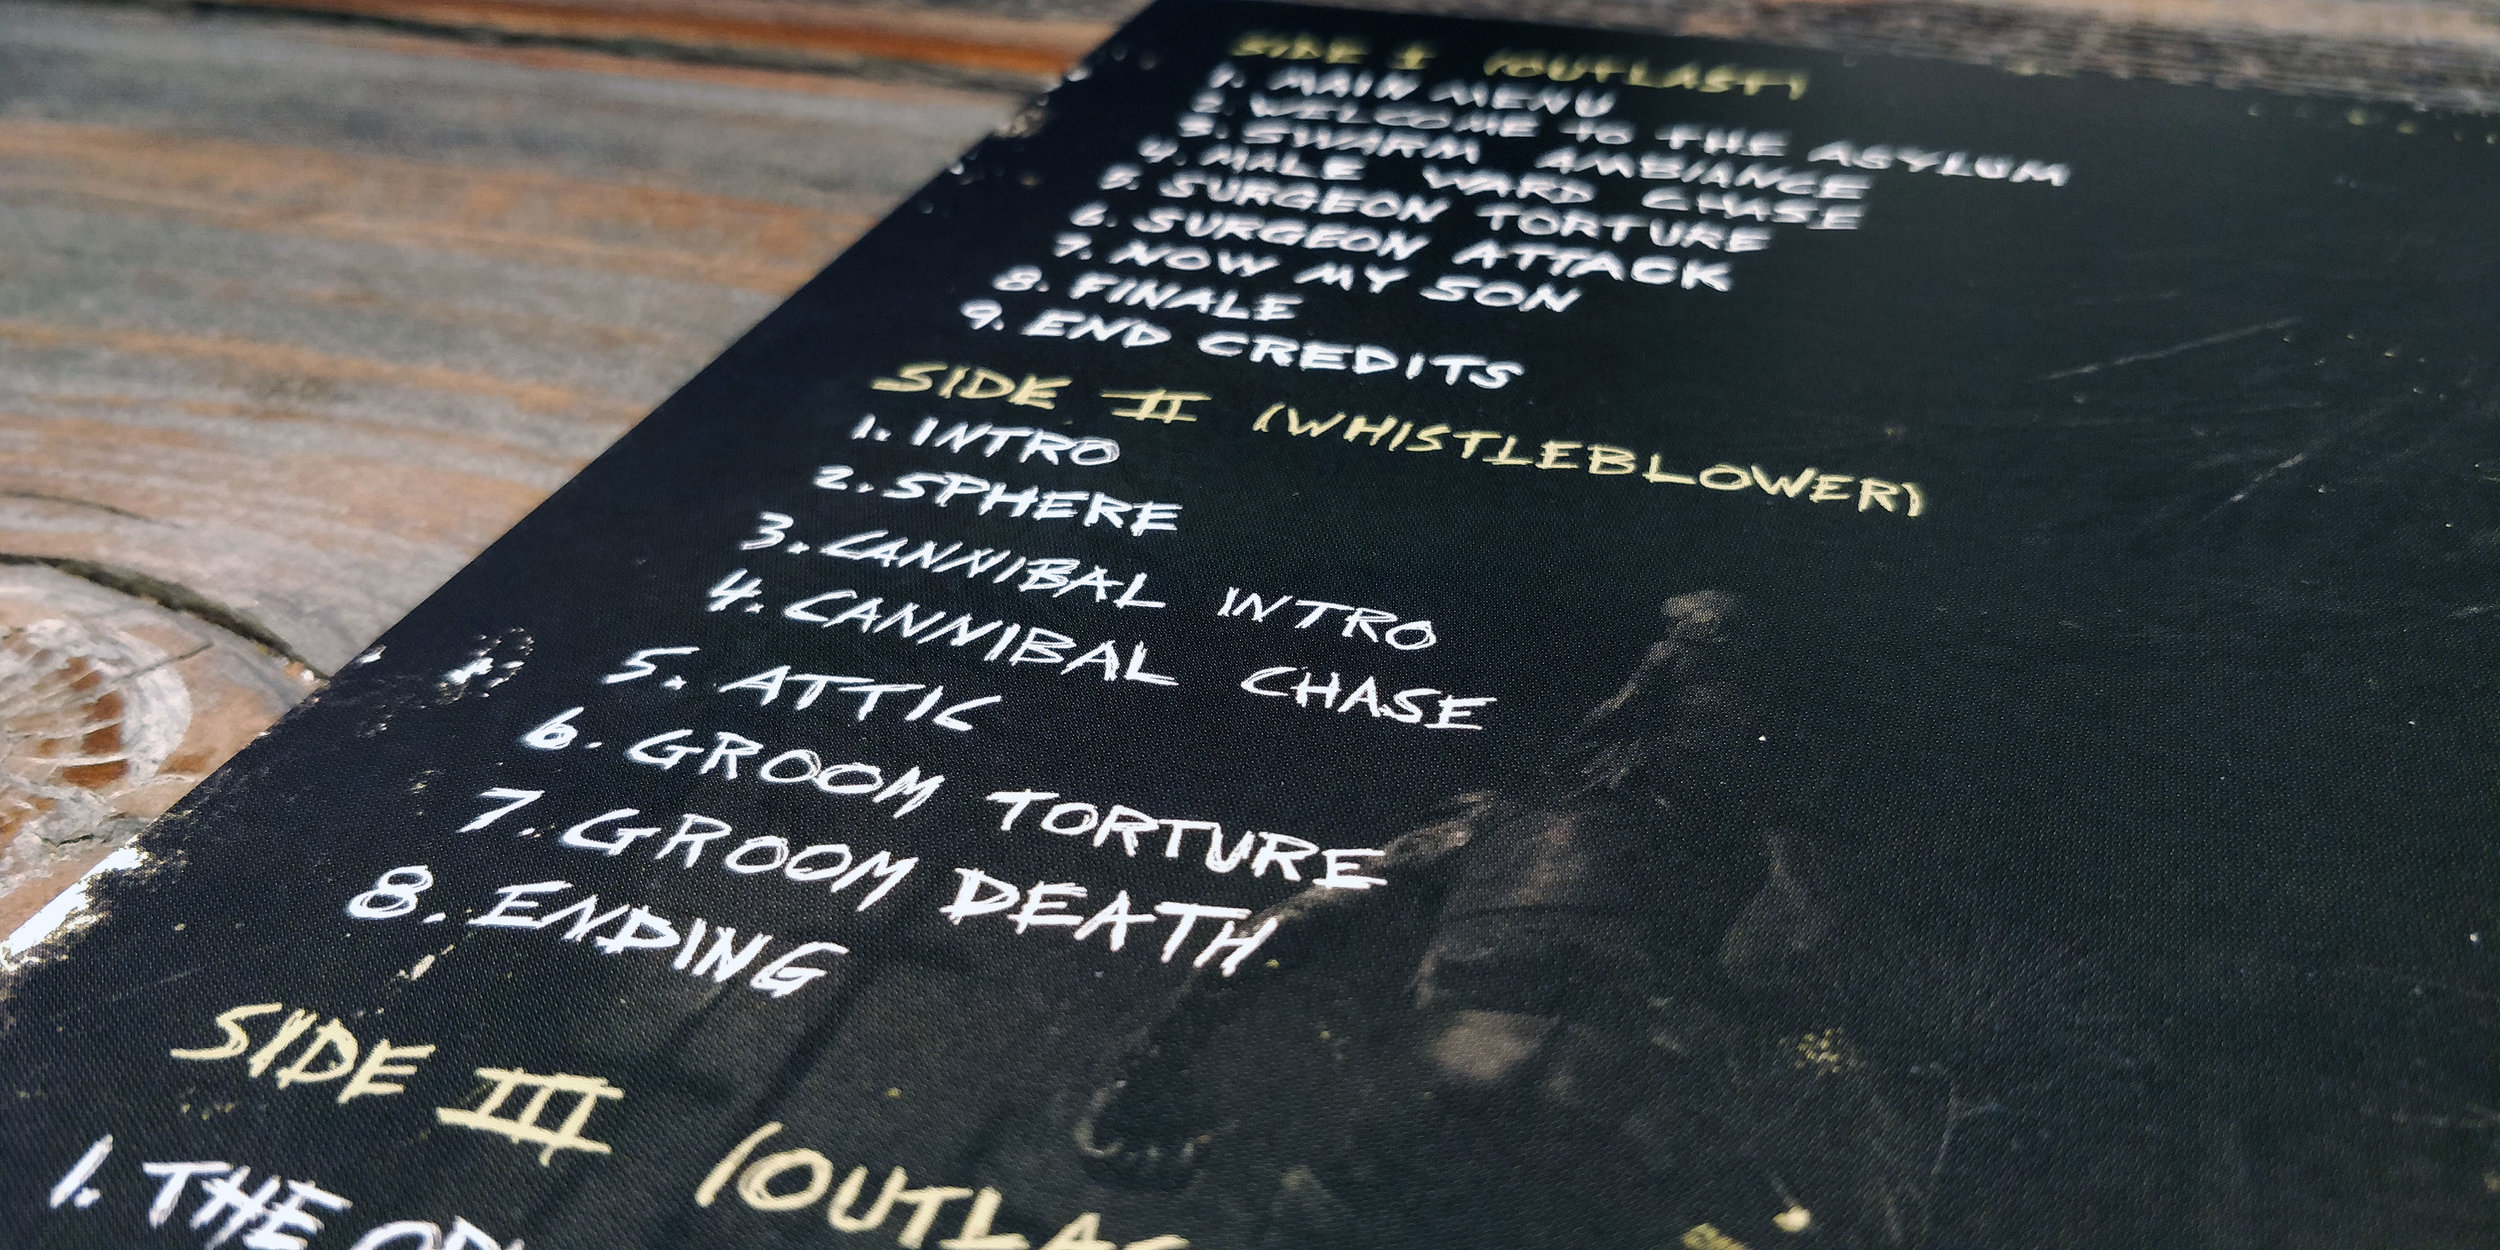 SIDE I (OUTLAST)
1. MAIN MENU
2. WELCOME TO THE ASYLUM
3. SWARM AMBIANCE
4. MALE WARD CHASE
5. SURGEON TORTURE
6. SURGEON ATTACK
7. NOW MY SON
8. FINALE
9. END CREDITS
SIDE II (WHISTLEBLOWER)
1. INTRO
2. SPHERE
3. CANNIBAL INTRO
4. CANNIBAL CHASE
5. ATTIC
6. GROOM TORTURE
7. GROOM DEATH
8. ENDING
SIDE III
1. THE